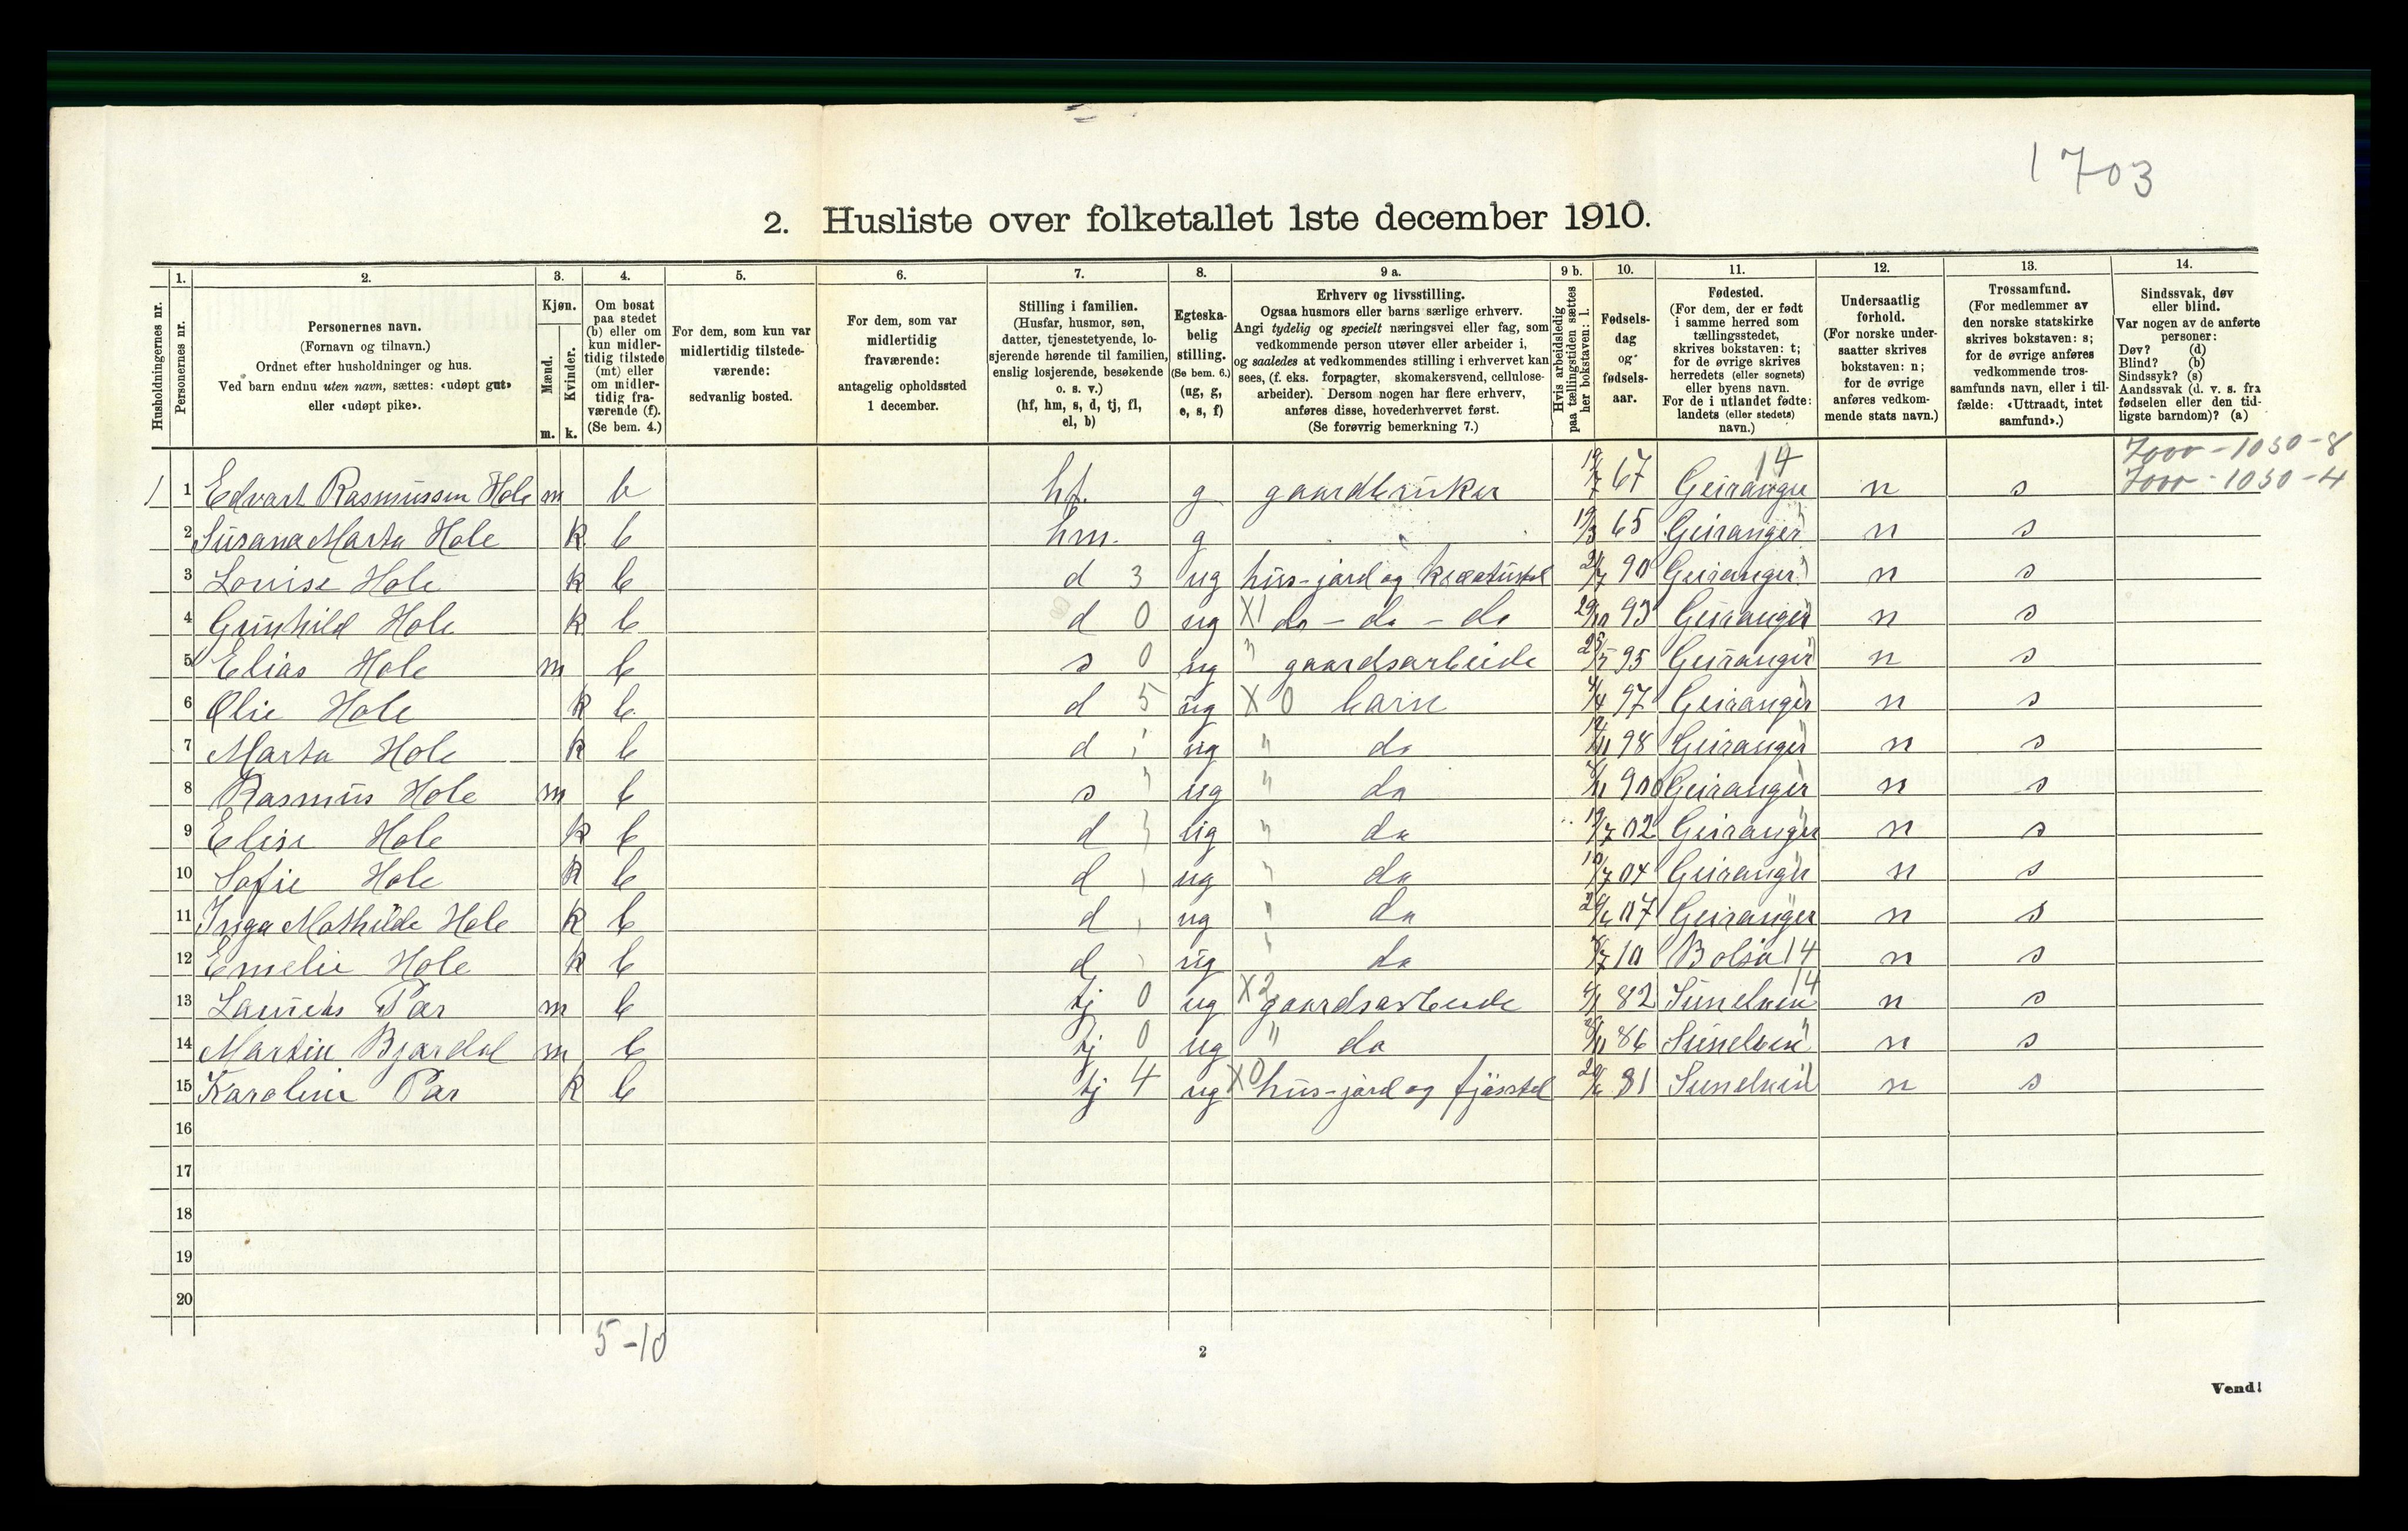 1703
2. Husliste over folketallet 1ste december 1910.
Husholdningernes nr.
1.
Personernes nr.
2.
Personernes navn.
(Fornavn og tilnavn.)
Ordnet efter husholdninger og hus.
Ved barn endnu uten navn, sættes: «udøpt gut»
eller «udøpt pike».
3.
Kjøn.
Mænd.
Kvinder.
m. k.
4.
Om bosat
paa stedet
(b) eller om
kun midler-
tidig tilstede
(mt) eller
om midler-
tidig fra-
værende (f).
(Se bem. 4.)
5.
For dem, som kun var
midlertidig tilstede-
værende:
sedvanlig bosted.
6.
For dem, som var
midlertidig
fraværende:
antagelig opholdssted
1 december.
7.
Stilling i familien.
(Husfar, husmor, søn,
datter, tjenestetyende, lo-
sjerende hørende til familien,
enslig losjerende, besøkende
o. s. v.)
(hf, hm, s, d, tj, fl,
el, b)
8.
Egteska-
belig
stilling.
(Se bem. 6.)
(ug, g,
e, s, f)
9 a.
Erhverv og livsstilling.
Ogsaa husmors eller barns særlige erhverv.
Angi tydelig og specielt næringsvei eller fag, som
vedkommende person utøver eller arbeider i,
og saaledes at vedkommendes stilling i erhvervet kan
sees, (f. eks. forpagter, skomakersvend, cellulose-
arbeider). Dersom nogen har flere erhverv,
anføres disse, hovederhvervet først.
(Se forøvrig bemerkning 7.)
9 b.
Hvis arbeidsledig
paa tællingstiden sættes
her bokstaven: l.
10.
Fødsels-
dag
og
fødsels-
aar.
11.
Fødested.
(For dem, der er født
i samme herred som
tællingsstedet,
skrives bokstaven: t;
for de øvrige skrives
herredets (eller sognets)
eller byens navn.
For de i utlandet fødte:
landets (eller stedets)
navn.)
12.
Undersaatlig
forhold.
(For norske under-
saatter skrives
bokstaven: n;
for de øvrige
anføres vedkom-
mende stats navn.)
13.
Trossamfund.
(For medlemmer av
den norske statskirke
skrives bokstaven: s;
for de øvrige anføres
vedkommende tros-
samfunds navn, eller i til-
fælde: «Uttraadt, intet
samfund».)
14.
Sindssvak, døv
eller blind.
Var nogen av de anførte
personer:
Døv? (d)
Blind? (b)
Sindssyk? (s)
Aandssvak (d. v. s. fra
fødselen eller den tid-
ligste barndom)? (a)
7000 - 1050 - 8
7000 - 1050 - 4
14
1 1 Edvart Rasmussen Hole m b hf. g gaardbruker 19/7 67 Geiranger n s
2 Susana Marta Hole k b hm. g 19/3 65 Geiranger n s
3 Louise Hole k b d 3 ug hus-jord og 90 Geiranger n s
4 Gunhild Hole k b d 0 ug X1 do - do - do 29/10 93 Geiranger n s
5 Elias Hole m b s 0 ug " gaardsarbeide 95 Geiranger n s
6 Olie Hole k b d 5 ug X 0 barn 4/4 97 Geiranger n s
7 Marta Hole k b d " ug " do 98 Geiranger n s
8 Rasmus Hole m b s " ug " do 900 Geiranger n s
9 Elise Hole k b d " ug " do 19/7 02 Geiranger n s
10 Sofie Hole k b d " ug " do 10/7 04 Geiranger n s
11 Inga Mathilde Hole k b d " ug " do 29/6 07 Geiranger n s
12 Emelie Hole k b d " ug " do 10 Bolsø 14 n s
13 Laurits Par m b tj 0 ug X2 gaardsarbeide 82 Sunelven 14 n s
14 Martin Bjørdal m b tj 0 ug " do 86 Sunelven " n s
15 Karoline Par k b tj 4 ug X0 hus-jord og fjösstel 81 Sunelven n s
16
17
18
19
20
5-10
2
Vend!